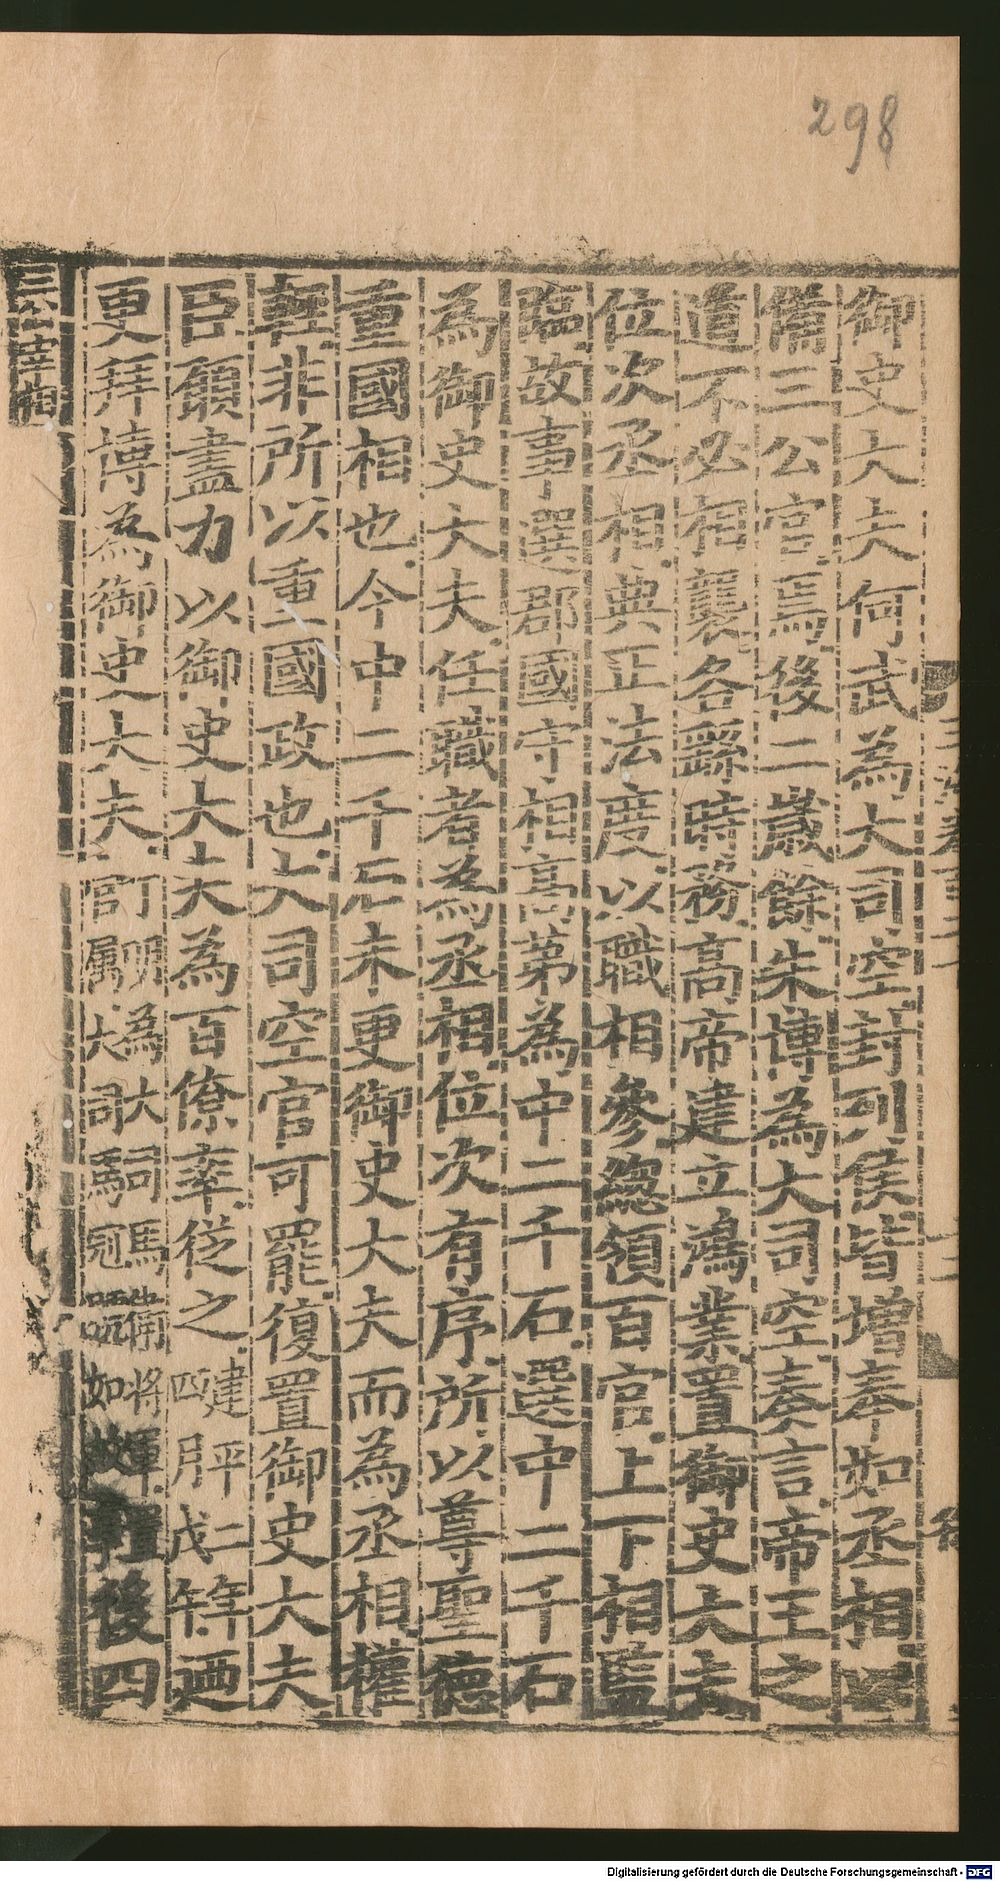 298
御史大夫何武為大司空封列侯皆增奉如丞相
備三公官焉後二歲餘朱博為大司空奏言帝王之
道不必相襲各繇時務高帝建立鴻業置御史大夫
位次丞相典正法度以職相參緫領百官上下相監
臨故事選郡國守相高苐為中二千石選中二千石
為御史大夫任職者為丞相位次有序所以尊聖德
重國相也今中二千石未更御史大夫而為丞相權
輕非所以重國政也大司空官可罷復置御史大夫
臣願盡力以御史大夫為百僚率從之建平二
四月戊
更拜博為御史大夫
丁明為大司馬衞將軍置
官属大司馬冠号如故事後四
三公宰相
Digitalisierung gefördert durch die Deutsche Forschungsgemeinschaft - DFG